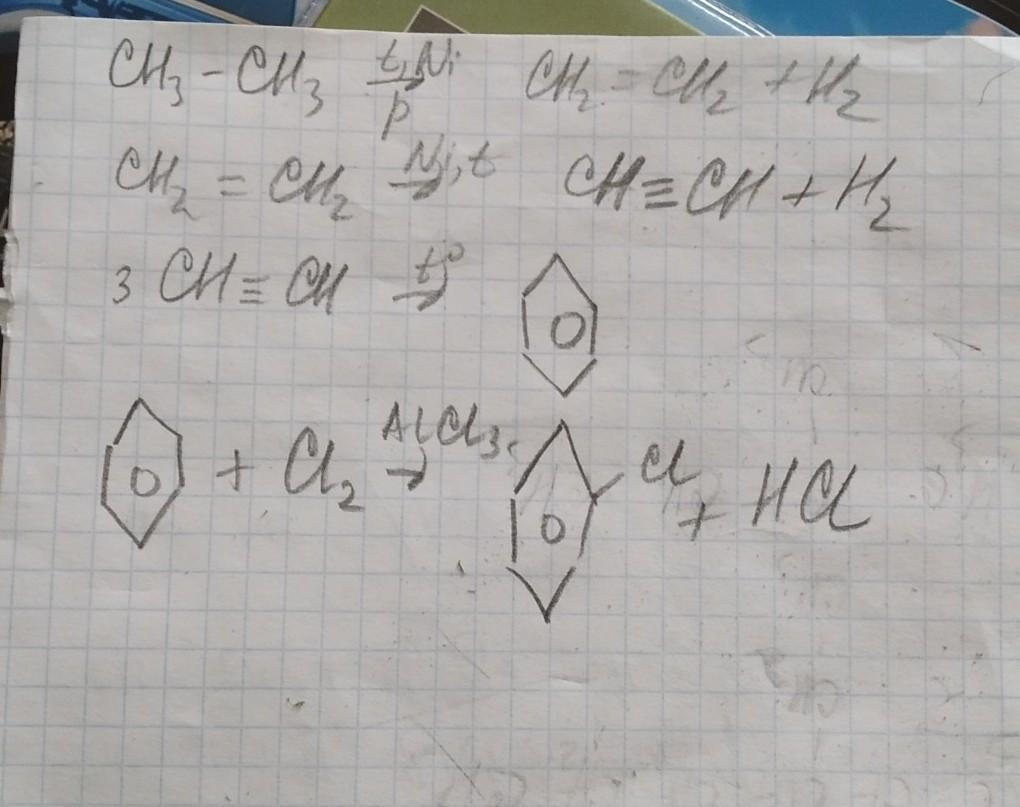 CH₃ - CH₃ t,Ni → p CH₂ = CH₂ + H₂
CH₂ = CH₂ Ni,t → CH ≡ CH + H₂
3 CH ≡ CH t° →
+ Cl₂ AlCl₃ → Cl + HCl